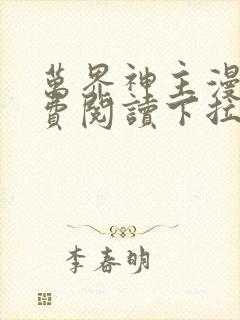 萬界神主漫
費閱讀下拉
李春明